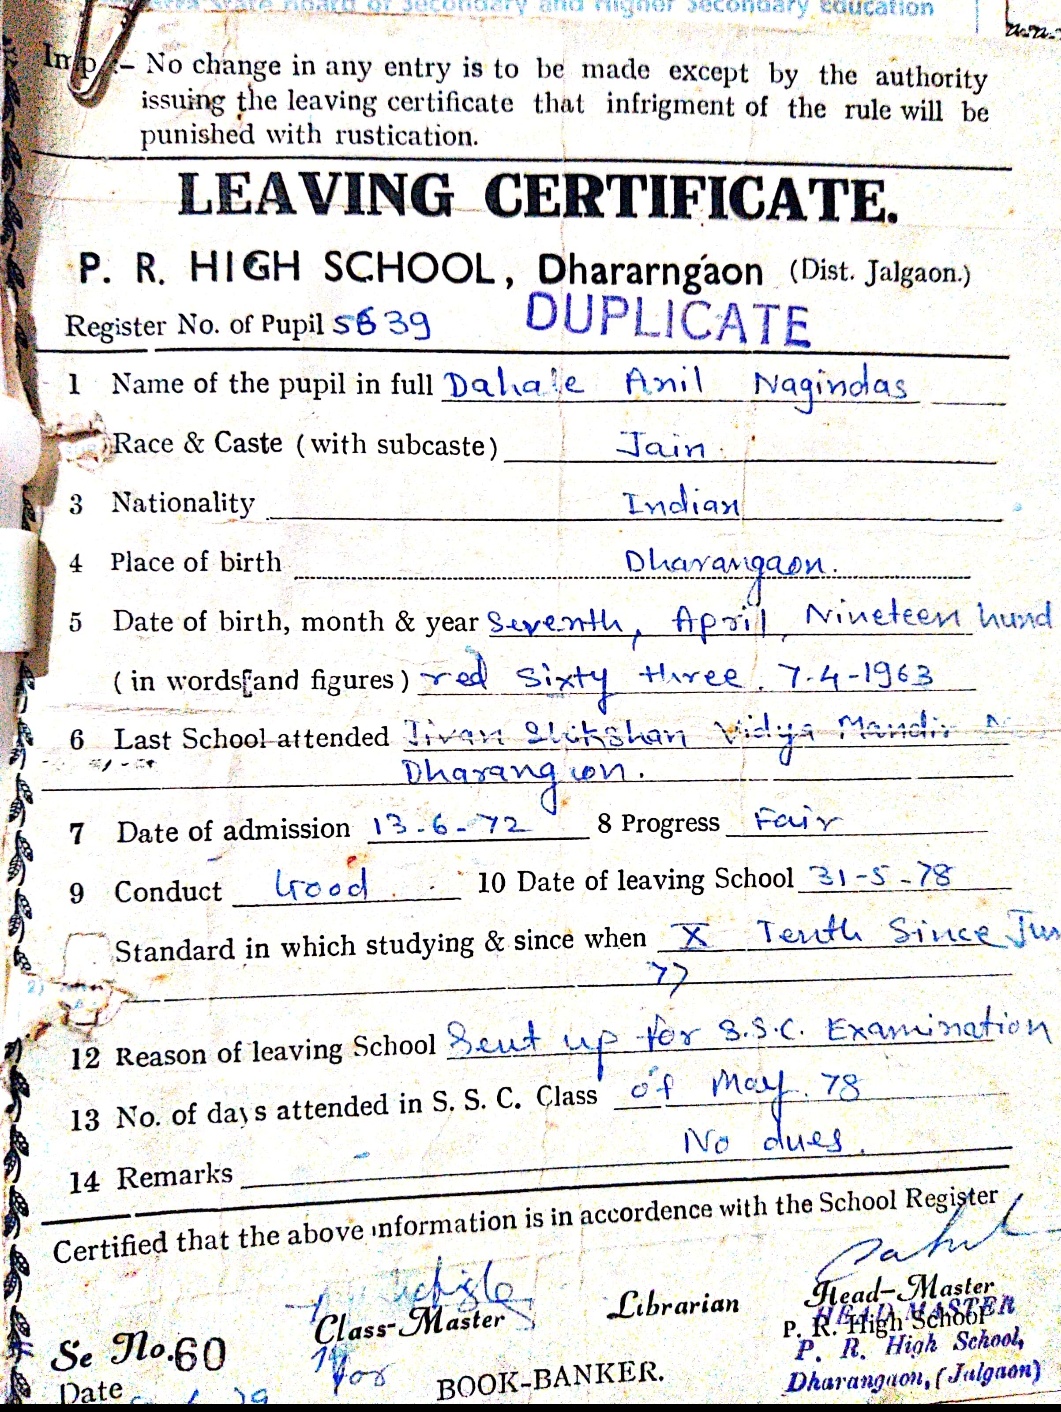 State Board of Secondary and Higher Secondary Education
Imp :- No change in any entry is to be made except by the authority
issuing the leaving certificate that infrigment of the rule will be
punished with rustication.
LEAVING CERTIFICATE.
P. R. HIGH SCHOOL, Dhararngaon (Dist. Jalgaon.)
Register No. of Pupil 5639 DUPLICATE
1 Name of the pupil in full Dahale Anil Nagindas
Race & Caste (with subcaste) Jain
3 Nationality Indian
4 Place of birth Dharangaon.
5 Date of birth, month & year Seventh, April, Nineteen hund
(in words and figures) red sixty three. 7-4-1963
6 Last School attended Jivan Shikshan Vidya Mandir
Dharangaon.
7 Date of admission 13-6-72 8 Progress Fair
9 Conduct Good. 10 Date of leaving School 31-5-78
Standard in which studying & since when X Tenth Since Jun
77
12 Reason of leaving School Sent up for S.S.C. Examination
13 No. of days attended in S. S. C. Class of May. 78
No dues.
14 Remarks
Certified that the above information is in accordence with the School Register
Class-Master Librarian Head-Master
For P. R. High School
HEAD MASTER
P. R. High School,
Dharangaon, (Jalgaon)
Se No. 60
BOOK-BANKER.
Date